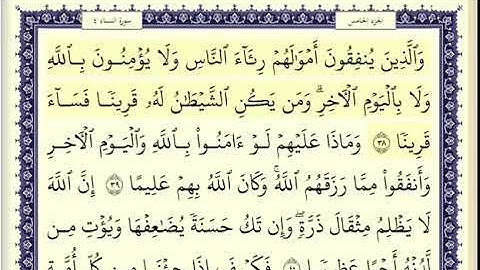 الجزء الخامس سورة النساء ٤
وَٱلَّذِينَ يُنفِقُونَ أَمْوَٰلَهُمْ رِئَآءَ ٱلنَّاسِ وَلَا يُؤْمِنُونَ بِٱللَّهِ
وَلَا بِٱلْيَوْمِ ٱلْـَٔاخِرِ ۗ وَمَن يَكُنِ ٱلشَّيْطَٰنُ لَهُۥ قَرِينًا فَسَآءَ
قَرِينًا ٣٨ وَمَاذَا عَلَيْهِمْ لَوْ ءَامَنُوا۟ بِٱللَّهِ وَٱلْيَوْمِ ٱلْـَٔاخِرِ
وَأَنفَقُوا۟ مِمَّا رَزَقَهُمُ ٱللَّهُ ۚ وَكَانَ ٱللَّهُ بِهِمْ عَلِيمًا ٣٩ إِنَّ ٱللَّهَ
لَا يَظْلِمُ مِثْقَالَ ذَرَّةٍ ۖ وَإِن تَكُ حَسَنَةً يُضَٰعِفْهَا وَيُؤْتِ مِن
لَّدُنْهُ أَجْرًا عَظِيمًا ٤٠ فَكَيْفَ إِذَا جِئْنَا مِن كُلِّ أُمَّةٍۭ